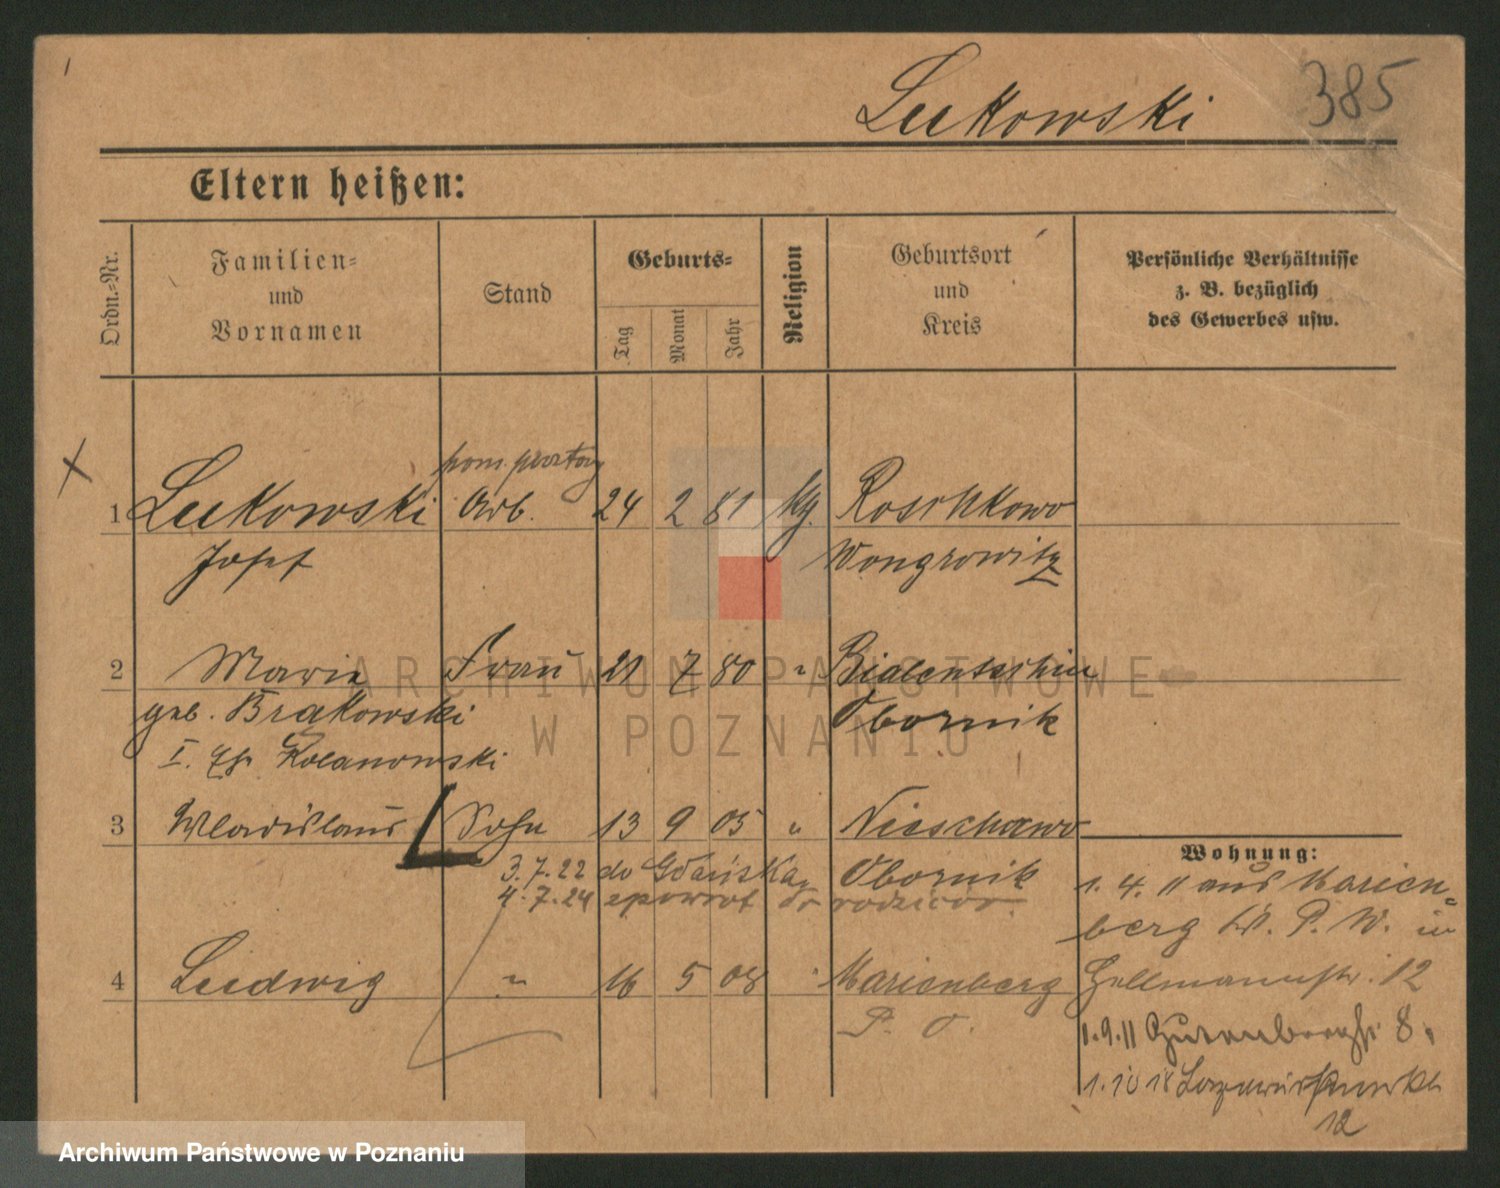 385
Lukowski
Eltern heißen:
Ordn.-Nr.
Familien-
und
Vornamen
Stand
Geburts-
Tag
Monat
Jahr
Religion
Geburtsort
und
Kreis
Persönliche Verhältnisse
z. B. bezüglich
des Gewerbes usw.
1 Lukowski Arb. 24 2 81 kg.
Josef Wongrowitz
2 Marie Frau 21 7 80 "
geb. Brakowski Obornik
I. Kolanowski
3 Wladislaus Sohn 13 9 05 "
Obornik
3.7.22 do Gdańska
4.7.24 spowrot do rodziców.
4 Ludwig " 16 5 08 " Marienberg
P. O.
Wohnung:
1. 4. 11 aus Marien-
berg P. W. in
12
1.9.11 8.
1.10 18
12
ARCHIWUM PAŃSTWOWE
W POZNANIU
Archiwum Państwowe w Poznaniu